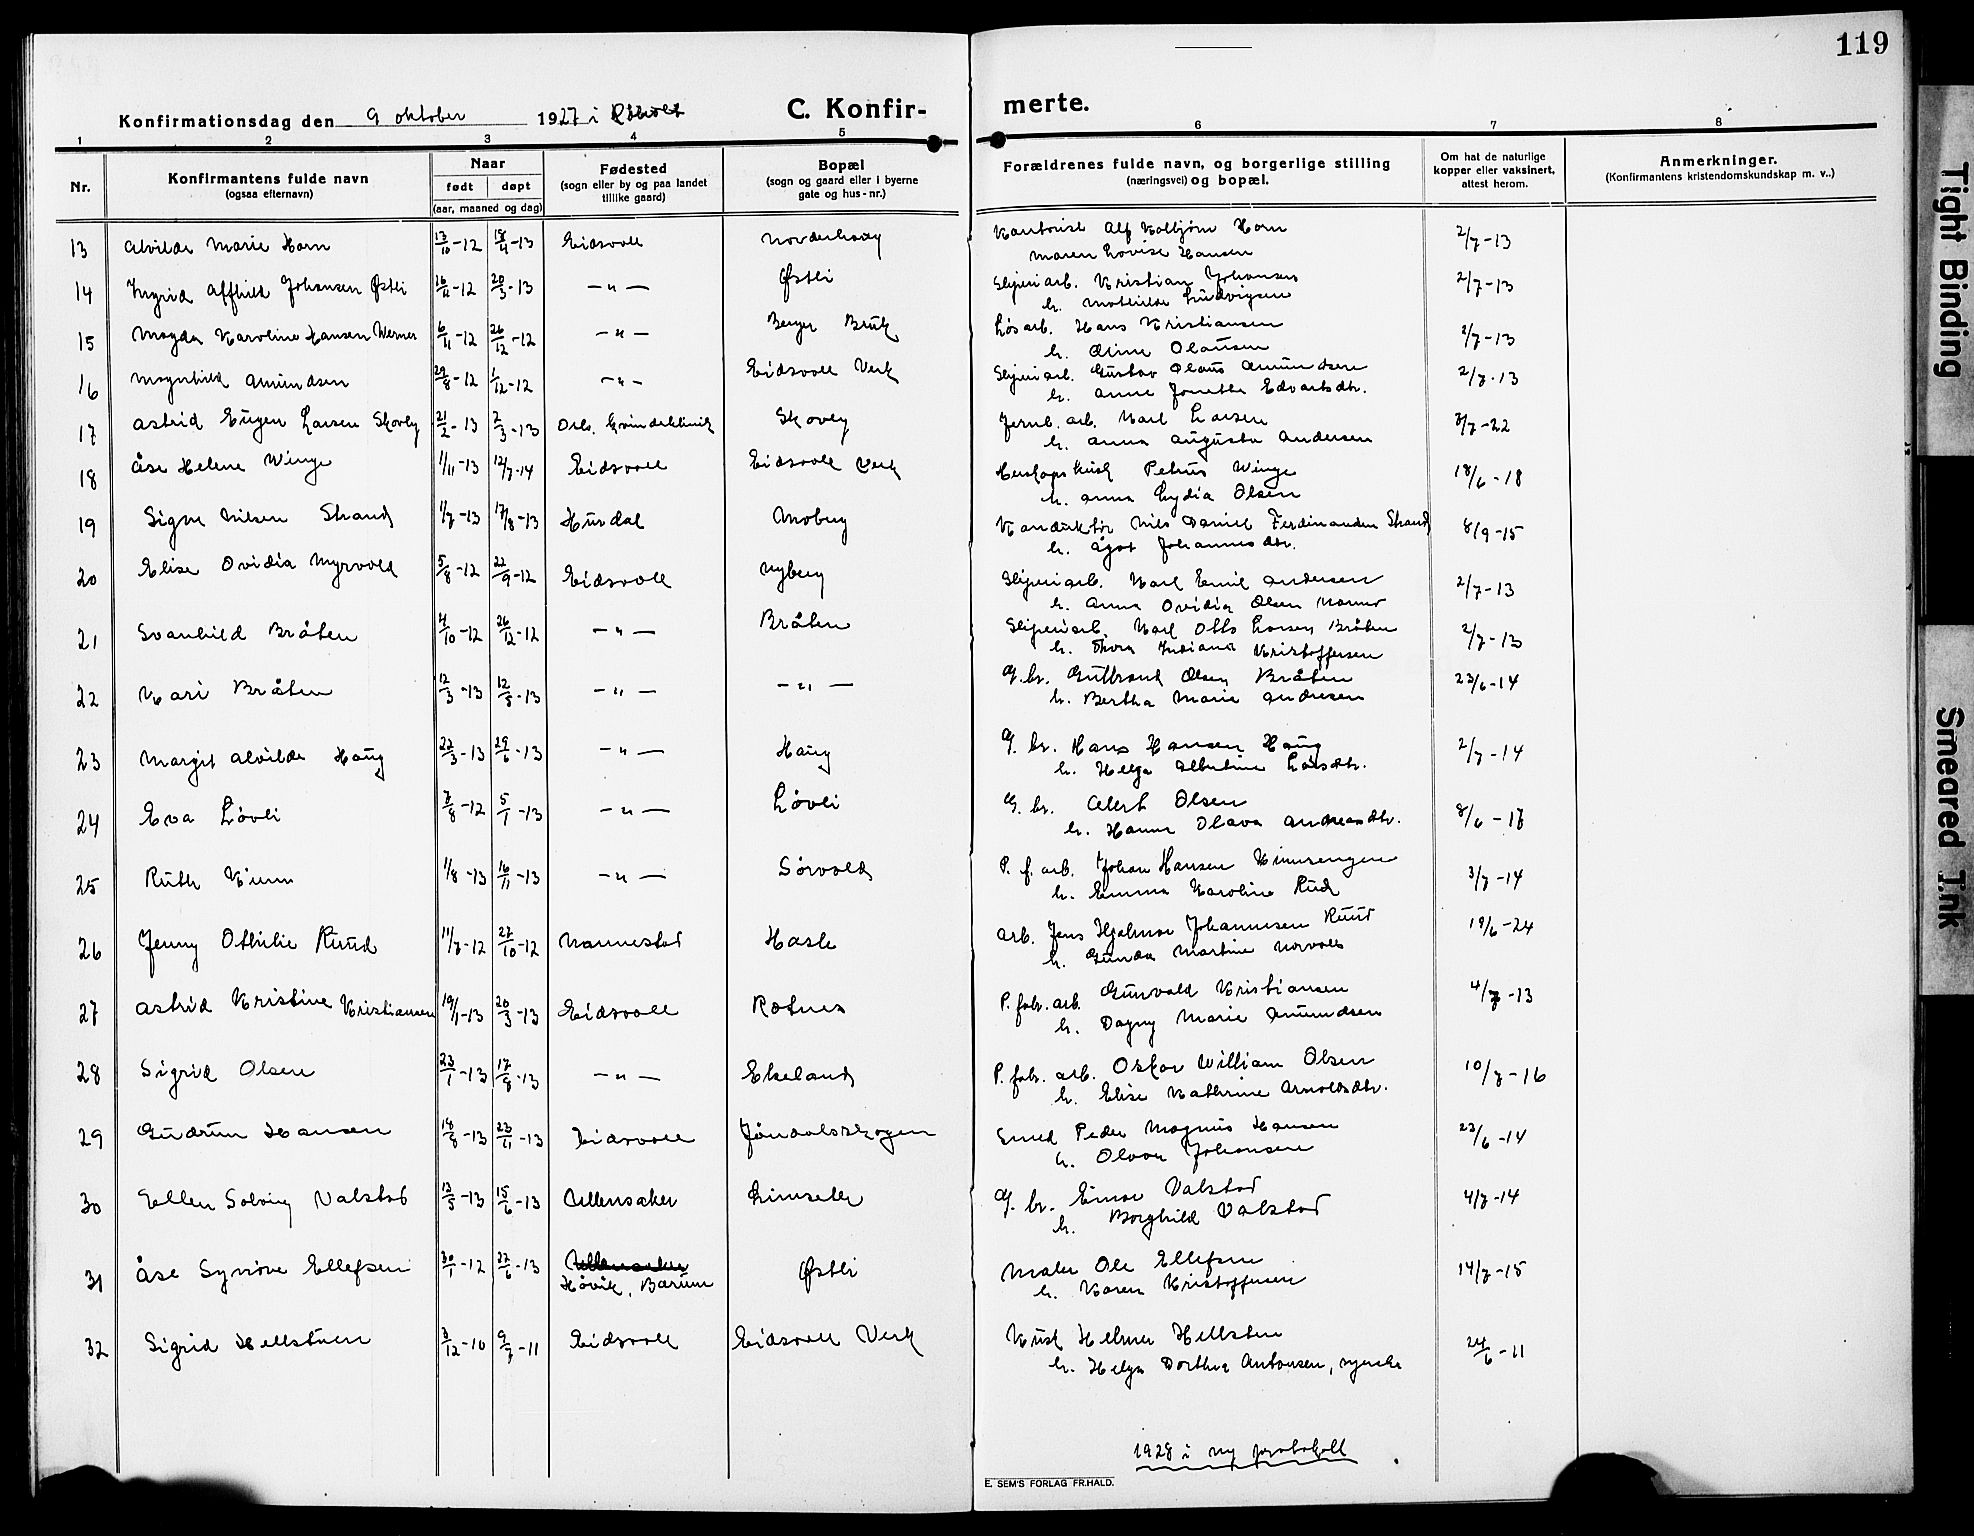 119
Konfirmationsdag den 9 oktober 1927 i Råholt
C. Konfirmerte.
1 2 3 4 5 6 7 8
Nr.
Konfirmantens fulde navn
(ogsaa efternavn)
Naar
født døpt
(aar, maaned og dag)
Fødested
(sogn eller by og paa landet
tillike gaard)
Bopæl
(sogn og gaard eller i byerne
gate og hus-nr.)
Forældrenes fulde navn, og borgerlige stilling
(næringsvei) og bopæl.
Om hat de naturlige
kopper eller vaksinert,
attest herom.
Anmerkninger.
(Konfirmantens kristendomskundskap m. v..)
13 Alvilde Marie Horn 13/10-12 18/4-13 Eidsvoll Norderhaug Kontorist Alf Kolbjørn Horn 2/7-13
Maren Lovise Hansen
14 Ingrid Affhild Johansen Østli 20/3-13 —"— Østli Sliperiarb. Kristian Johansen 2/7-13
h. Mathilde Ludvigsen
15 Magda Karoline Hansen Werner 6/11-12 26/12-12 —"— Berger Bruk Løsarb. Hans Kristiansen 2/7-13
h. Oline Olausen
16 Magnhild Amundsen 29/8-12 1/12-12 —"— Eidsvoll Verk Sliperiarb. Gustav Olaus Amundsen 2/7-13
h. Anne Jonetta Edvartsdtr.
17 Astrid Eugen Larsen Skovly 21/2-13 2/3-13 Oslo, Kvindeklinik Skovly Jernb. arb. Karl Larsen 3/7-22
h. Anna Augusta Andersen
18 Åse Helene Winge 1/11-13 12/7-14 Eidsvoll Eidsvoll Verk Herskapskusk Petrus Winge 18/6-18
h. Anna Lydia Olsen
19 Signe Nilsen Strand 1/7-13 17/8-13 Hurdal Moberg Konduktør Nils Daniel Ferdinandsen Strand 8/9-15
h. Ågot Johannesdtr.
20 Elise Ovidia Myrvold 5/8-12 22/9-12 Eidsvoll Nyberg Sliperiarb. Karl Emil Andersen 2/7-13
h. Anna Ovidia Olsen
21 Svanhild Bråten 4/10-12 26/12-12 —"— Bråten Sliperiarb. Karl Otto Larsen Bråten 2/7-13
h. Thora Indiana Kristoffersen
22 Kari Bråten 12/3-13 12/5-13 —"— —"— G.br. Gulbrand Olsen Bråten 23/6-14
h. Bertha Marie Andresen
23 Margit Alvilde Haug 22/3-13 29/6-13 —"— Haug G.br. Hans Hansen Haug 2/7-14
h. Helga Albertine Larsdtr.
24 Eva Løvli 7/8-12 5/1-13 —"— Løvli G.br. Albert Olsen 8/6-17
h. Hanna Olava Andreasdtr.
25 Ruth Kinn 1/8-13 16/11-13 —"— Sørvold P. f. arb. Johan Hansen Kinnsengen 3/7-14
h. Emma Karoline Rud
26 Jenny Othilie Ruud 11/7-12 27/10-12 Nannestad Hasle Arb. Jens Hjalmar Johannesen Ruud 19/6-24
h. Gunda Martine
27 Astrid Kristine Kristiansen 19/1-13 20/3-13 Eidsvoll Rotnes P. fabr. arb. Gunvald Kristiansen 4/7-13
h. Dagny Marie Amundsen
28 Sigrid Olsen 23/1-13 17/8-13 —"— Ekeland P. fabr. arb. Oskar William Olsen 10/7-16
h. Elise Kathrine Arnoldsdtr.
29 Gudrun Hansen 18/8-13 23/11-13 Eidsvoll Jøndalsskogen Smed Peder Magnus Hansen 23/6-14
h. Olava Johansen
30 Ellen Solveig Valstad 13/5-13 15/6-13 Ullensaker Limseter G.br. Einar Valstad 4/7-14
h. Borghild Valstad
31 Åse Synnøve Ellefsen 30/1-12 22/6-13 Ullensaker Østli Maler Ole Ellefsen 14/7-15
Høvik, Bærum h. Karen Kristoffersen
32 Sigrid Hellsteen 3/12-10 9/7-11 Eidsvoll Eidsvoll Verk Kusk Helmer Hellsten 24/6-11
h. Helga Dorthea Antonsen,
1928 i ny protokoll
E. SEM'S FORLAG FR.HALD.
Tight Binding
Smeared Ink